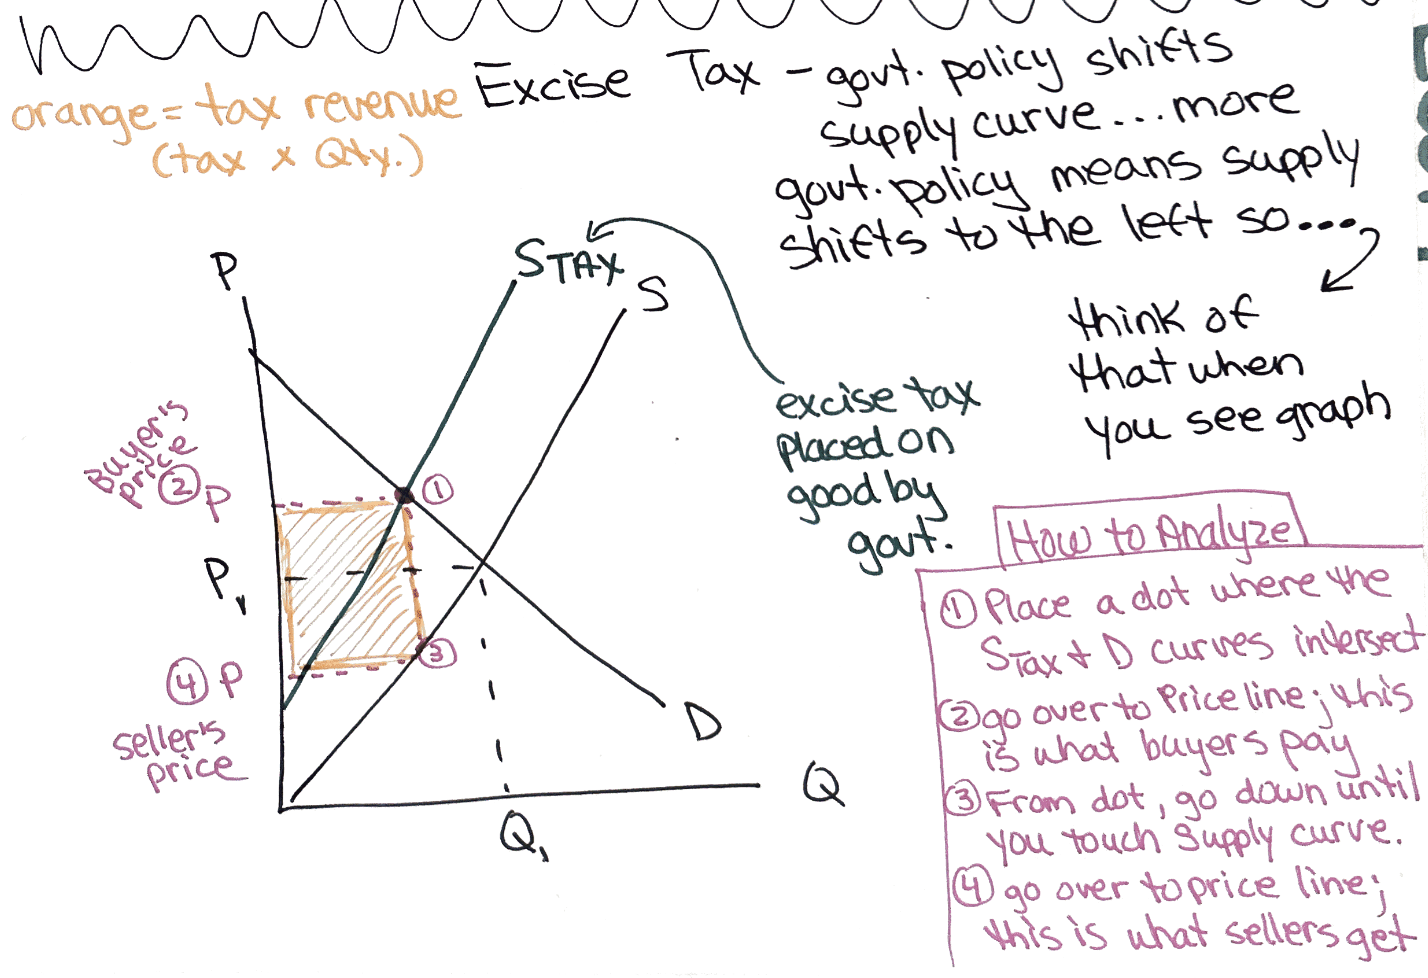 orange = tax revenue
(tax x Qty.)
Excise Tax - govt. policy shifts
supply curve...more
govt. policy means supply
shifts to the left so....
think of
that when
you see graph
P
STAX
S
excise tax
placed on
good by
govt.
Buyer's
price
② P
①
P₁
③
④ P
seller's
price
D
Q
Q₁
How to Analyze
① Place a dot where the
STax + D curves intersect
② go over to Price line; this
is what buyers pay
③ From dot, go down until
you touch supply curve.
④ go over to price line;
this is what sellers get